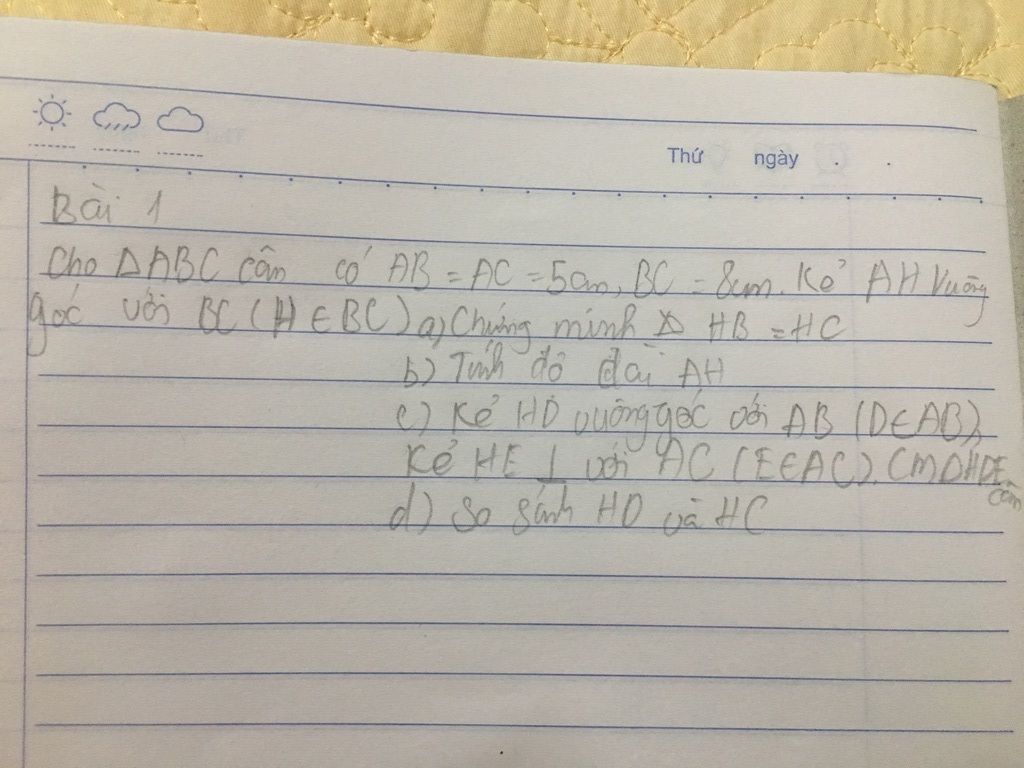 Thứ ngày . .
Bài 1
Cho ΔABC cân có AB = AC = 5cm, BC = 8cm. Kẻ AH vuông
góc với BC (H ∈ BC) a) Chứng minh HB = HC
b) Tính độ dài AH
c) Kẻ HD vuông góc với AB (D ∈ AB),
Kẻ HE ⊥ với AC (E ∈ AC). CM ΔHDE
cân
d) So sánh HD và HC